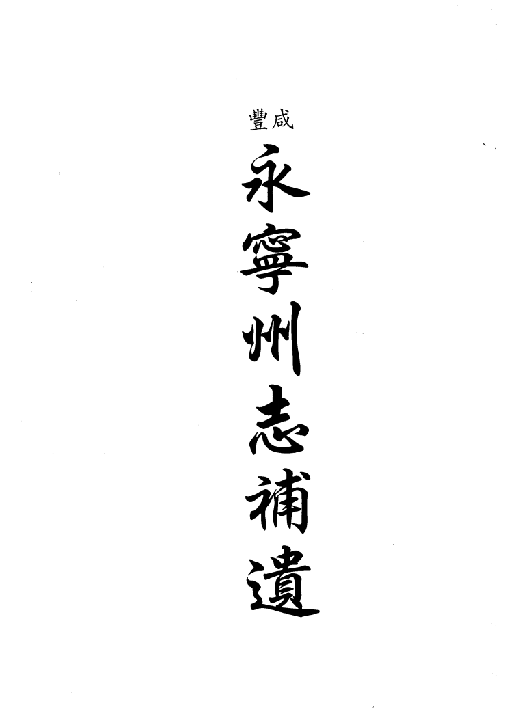 咸豐
永寧州志補遺